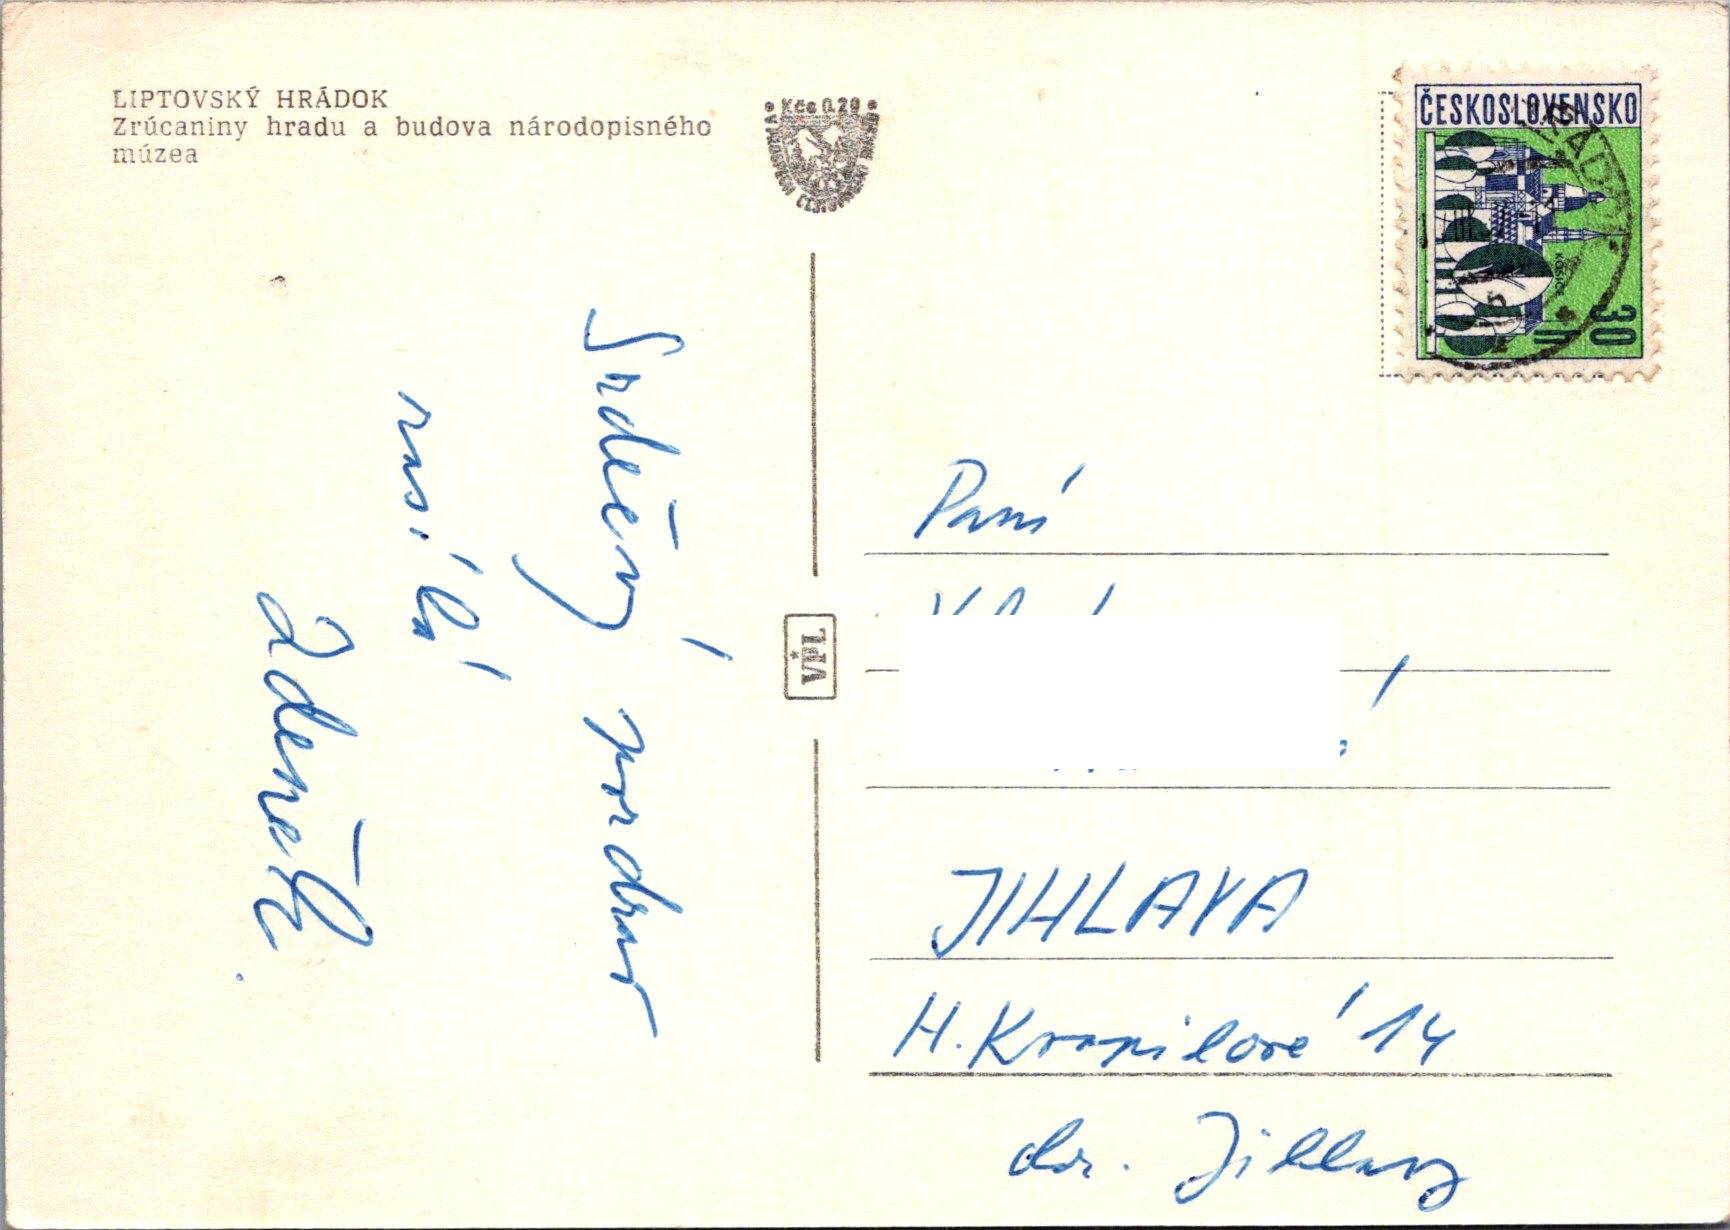 LIPTOVSKÝ HRÁDOK
Zrúcaniny hradu a budova národopisného
múzea
Kčs 0.20
ČESKOSLOVENSKO
KOŠICE
30
h
VPL
Srdečný pozdrav
zasílá
Zdeněk.
Paní
JIHLAVA
H. Kvapilové 14